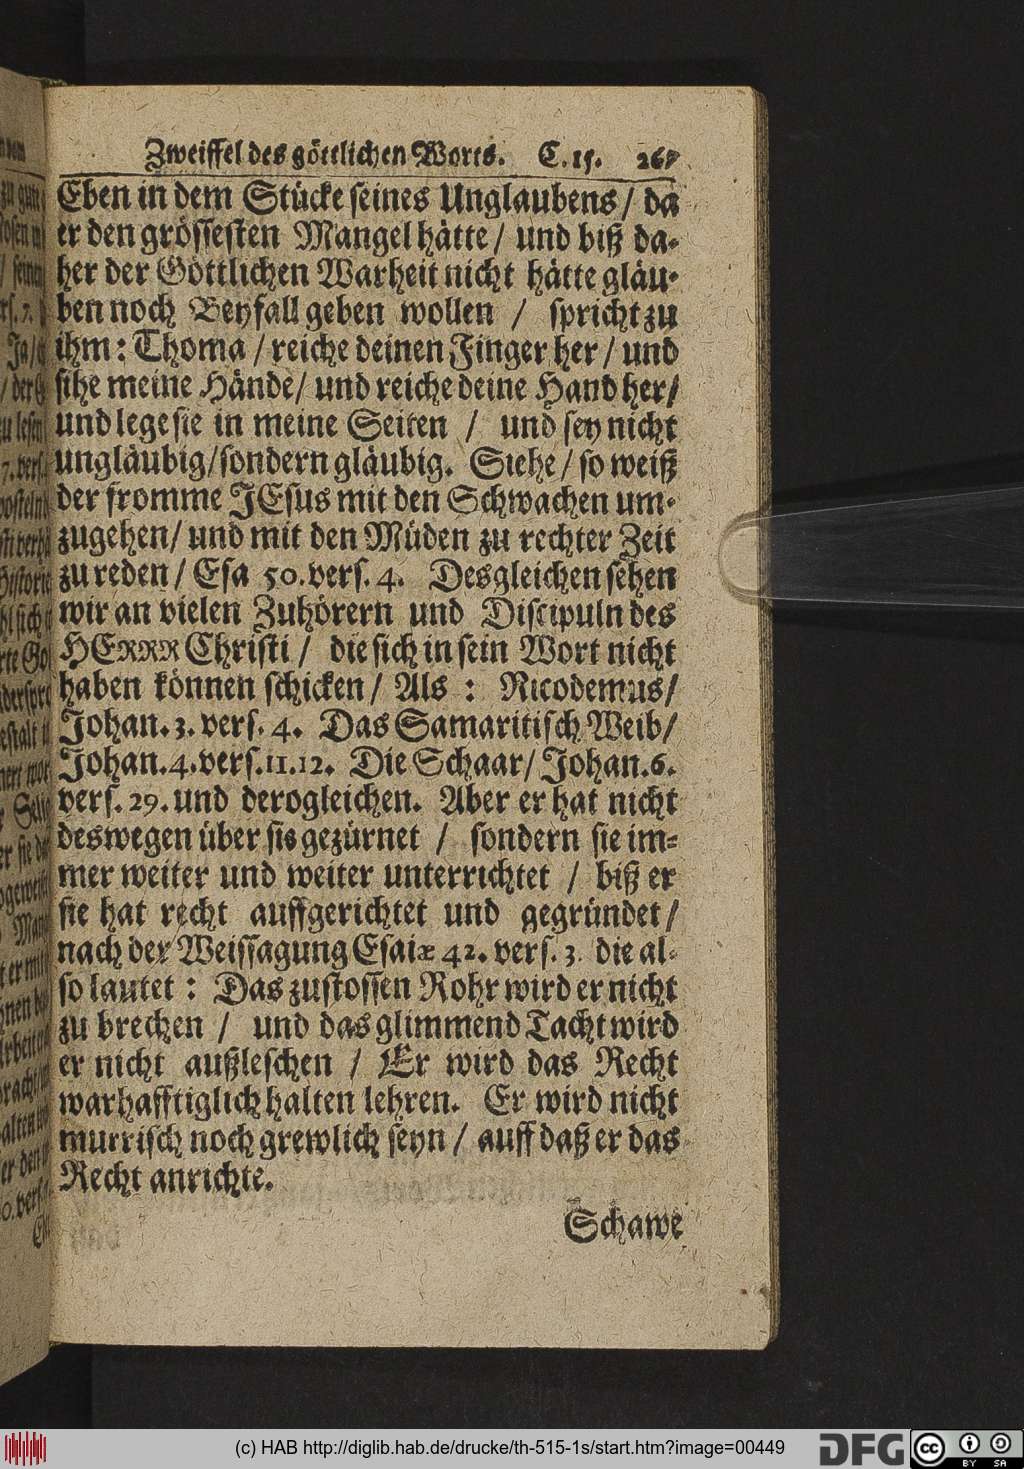 Zweiffel des göttlichen Worts. C. 15. 267
Eben in dem Stücke seines Unglaubens / da
er den grössesten Mangel hätte / und biß da-
her der Göttlichen Warheit nicht hätte gläu-
ben noch Beyfall geben wollen / spricht zu
ihm: Thoma / reiche deinen Finger her / und
sihe meine Hände / und reiche deine Hand her /
und lege sie in meine Seiten / und sey nicht
ungläubig / sondern gläubig. Siehe / so weiß
der fromme JEsus mit den Schwachen um-
zugehen / und mit den Müden zu rechter Zeit
zu reden / Esa 50. vers. 4. Desgleichen sehen
wir an vielen Zuhörern und Discipuln des
HERRR Christi / die sich in sein Wort nicht
haben können schicken / Als : Nicodemus /
Johan. 3. vers. 4. Das Samaritisch Weib /
Johan. 4. vers. 11. 12. Die Schaar / Johan. 6.
vers. 29. und derogleichen. Aber er hat nicht
deswegen über sie gezürnet / sondern sie im-
mer weiter und weiter unterrichtet / biß er
sie hat recht auffgerichtet und gegründet /
nach der Weissagung Esaiæ 42. vers. 3. die al-
so lautet : Das zustossen Rohr wird er nicht
zu brechen / und das glimmend Tacht wird
er nicht außleschen / Er wird das Recht
warhafftiglich halten lehren. Er wird nicht
murrisch noch grewlich seyn / auff daß er das
Recht anrichte.
Schawe
(c) HAB http://diglib.hab.de/drucke/th-515-1s/start.htm?image=00449
DFG
cc BY SA